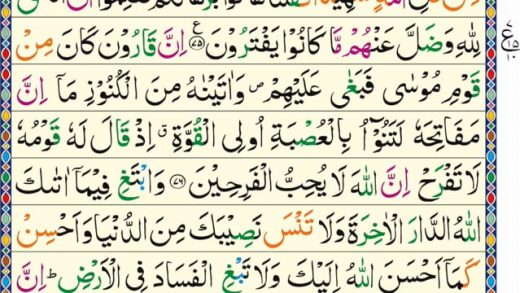 لِلّٰهِ وَضَلَّ عَنۡهُمۡ مَّا كَانُوۡا يَفۡتَرُوۡنَ ﴿۷۵﴾ اِنَّ قَارُوۡنَ كَانَ مِنۡ
قَوۡمِ مُوۡسٰى فَبَغٰى عَلَيۡهِمۡ ۖ وَاٰتَيۡنٰهُ مِنَ الۡكُنُوۡزِ مَاۤ اِنَّ
مَفَاتِحَهٗ لَتَنُوۡٓاُ بِالۡعُصۡبَةِ اُولِى الۡقُوَّةِ ۗ اِذۡ قَالَ لَهٗ قَوۡمُهٗ
لَا تَفۡرَحۡ اِنَّ اللّٰهَ لَا يُحِبُّ الۡفَرِحِيۡنَ ﴿۷۶﴾ وَابۡتَغِ فِيۡمَاۤ اٰتٰٮكَ
اللّٰهُ الدَّارَ الۡاٰخِرَةَ وَلَا تَنۡسَ نَصِيۡبَكَ مِنَ الدُّنۡيَا وَاَحۡسِنۡ
كَمَاۤ اَحۡسَنَ اللّٰهُ اِلَيۡكَ وَلَا تَبۡغِ الۡفَسَادَ فِى الۡاَرۡضِ ؕ اِنَّ